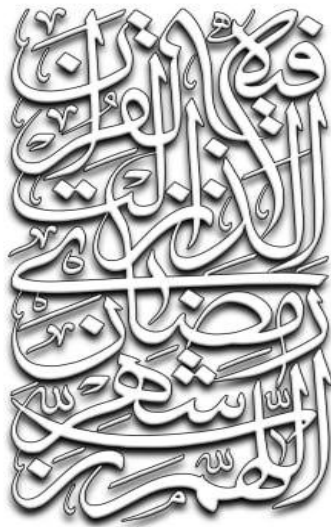 اللهم رب
شهر
رمضان
الذي انزلت
فيه القران